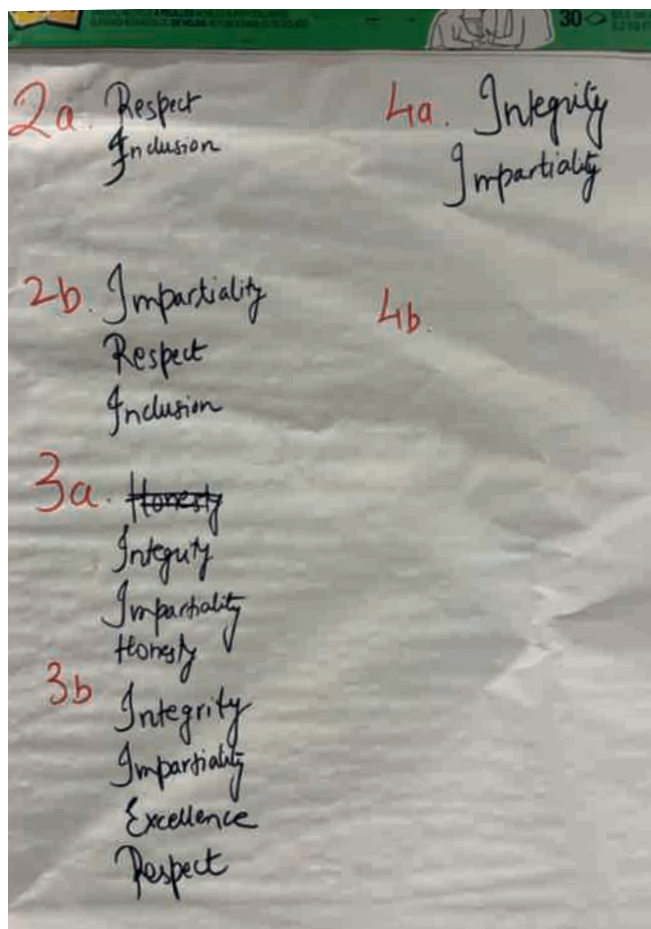 30
2a. Respect
Inclusion
2b. Impartiality
Respect
Inclusion
3a. Honesty
Integrity
Impartiality
Honesty
3b Integrity
Impartiality
Excellence
Respect
4a. Integrity
Impartiality
4b.